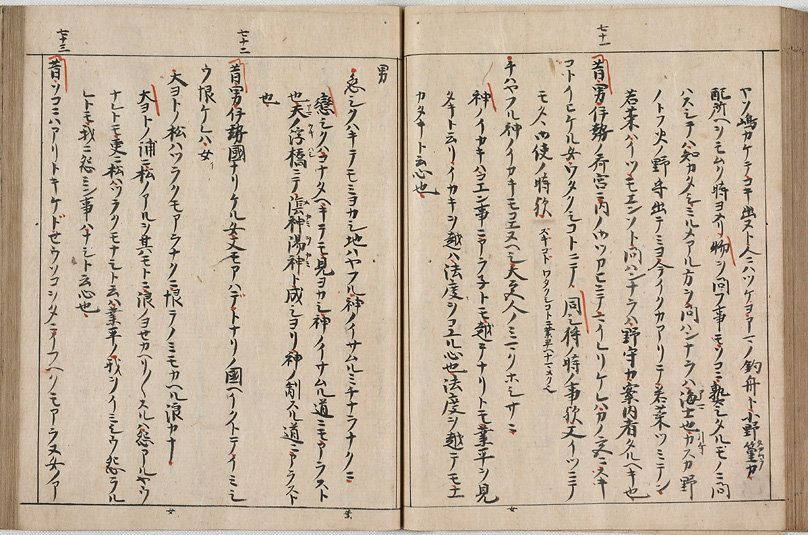 七十一
ヤソ嶋カケテコキ出ヌト人ニハツケヨアマノ釣舟ト小野篁カ
配所ヘシモムク時ヨメリ物ヲ問フ事モソコニ熟シタルモノニ問
ハスシテハ知カタシミルメアル方ヲ問ハンナラハ海士也カスカ野
ノトフ火ノ野守出テミヨ今イクカアリテ若菜ツミテン
若菜ハイツモエンノト問ハンナラハ野守カ案内者タルヘキ也
昔男伊勢ノ斎宮ニ内ノ御ツカヒニテマイレリケレハカノ宮ニスキ
コトイヒケル女ワタクシコトニテ 同シ狩ノ時ノ事歟又イツニテ
モ内ノ御使ノ時歟
チハヤフル神ノイカキモコエヌヘシ大宮人ノミマクホシサニ
神ノイカキハコエン事ニアラ子トモ越テナリトモ業平ヲ見
タキト云リイカキヲ越ハ法度ヲコユル心也法度ヲ越テモ上
カタキト云心也
男
恋シクハキテモミヨカシ地ハヤフル神ノイサムルミチナラナクニ
戀シクハコナタヘキテモ見ヨカシ神ノイサムル道ニモアラスト
也天ノ浮橋ニテ陰神陽神ト成シヨリ神ノ制スル道ニアラスト
也
七十二
昔男伊勢國ナリケル女又モアハデトナリノ國ヘイクトテイミシ
ウ恨ケレハ女
大ヨトノ松ハツラクモアラナクニ恨テノミモカヘル浪カナ
大ヨトノ浦ニ松ノアルヲ其モトニ浪ノヨセカヘリ〱スルハ怨アルヤウ
ナレトモ更ニ松ハツラクモナキト云ハ業平ノ我ヲイミシウ怨ラル
レトモ我ニ怨ミン事ハナシト云心也
七十三
昔ソコニハアリトキケドせウソコヲタニイフヘクモアラヌ女ノア